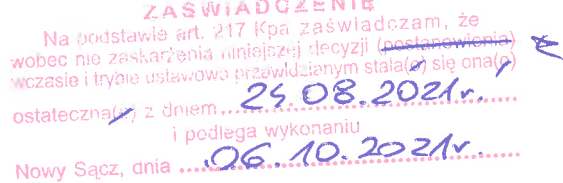 ZAŚWIADCZENIE
Na podstawie art. 217 Kpa zaświadczam, że
wobec nie zaskarżenia niniejszej decyzji (postanowienia)
wczasie i trybie ustawowo przewidzianym stała(o) się ona(o)
ostateczna(e) z dniem 25.08.2021r.
i podlega wykonaniu
Nowy Sącz, dnia 06.10.2021r.